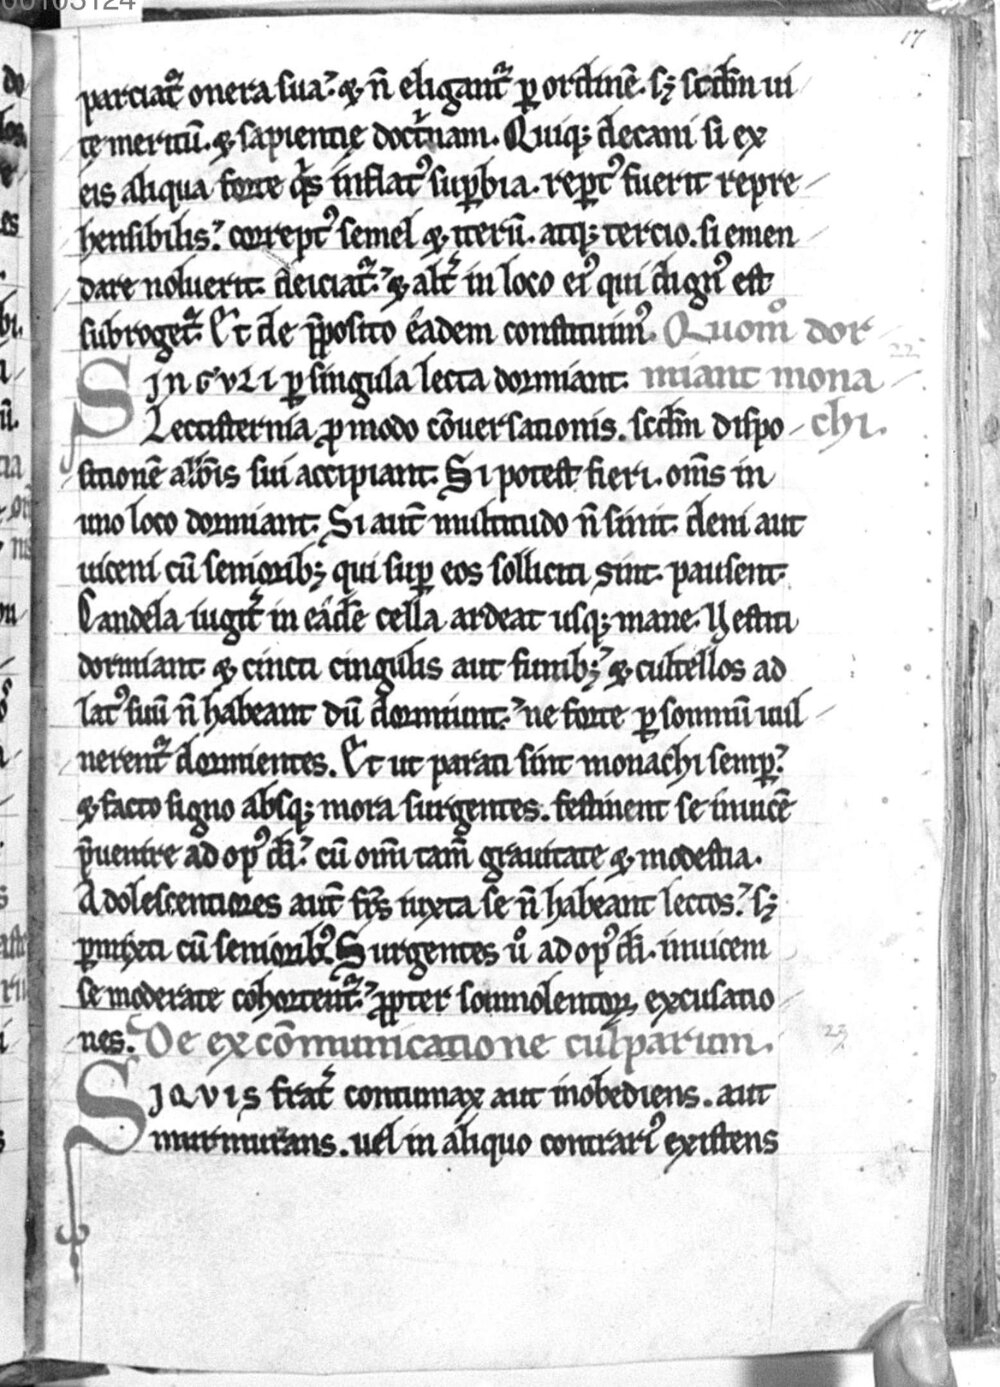 00105124
17
parciat᷑ onera sua. ⁊ n̄ eligant᷑ ꝑ ordinē. sꝫ scd̄m ui
te meritū. ⁊ sapientię doct͛nam. Quiqꝫ decani si ex
eis aliqua forte q͛s inflatꝰ suꝑbia. reptꝰ fuerit repre
hensibilis. correptꝰ semel ⁊ iterū. atqꝫ tercio. si emen
dare noluerit. deiciat᷑. ⁊ alt͛ in loco eiꝰ qui dignꝰ est
subroget᷑. Et de p̄posito eadem constituimꝰ. Quom̊ dor
Singuli ꝑ singula lecta dormiant. miant mona
22
Lectisternia ꝓ modo cōuersationis. scd̄m dispo chi.
sitionē abb̄is sui accipiant. Si potest fieri. om̄s in
uno loco dormiant. Si aut̄ multitudo n̄ sinit. deni aut
uiceni cū seniorib; qui suꝑ eos solliciti sint. pausent.
Candela iugit͛ in eadē cella ardeat usqꝫ mane. Uestiti
dormiant. ⁊ cincti cingulis aut funib;. ⁊ cultellos ad
latꝰ suū n̄ habeant dū dormiunt. ne forte ꝑ somnū uul
nerent᷑ dormientes. Et ut parati sint monachi semꝑ.
⁊ facto signo absqꝫ mora surgentes. festinent se inuicē
p̄uenire ad opꝰ dī. cū omi tam̄ grauitate ⁊ modestia.
Adolescentiores aut̄ fr̄s iuxta se n̄ habeant lectos. sꝫ
ꝑmixti cū seniorib;. Surgentes ů ad opꝰ dī. inuicem
se moderate cohortent᷑. ꝓpter somnolentoꝝ excusatio
nes. De excōmunicatione culparum.
23
Si quis frat͛ contumax aut inobediens. aut
murmurans. uel in aliquo contrariꝰ existens